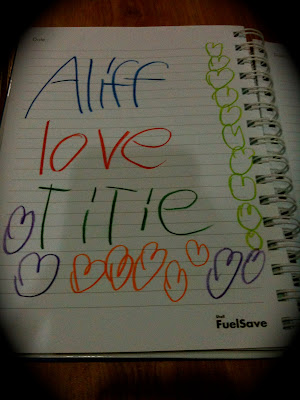 Date:
Aliff
love
TiTie
Shell
FuelSave